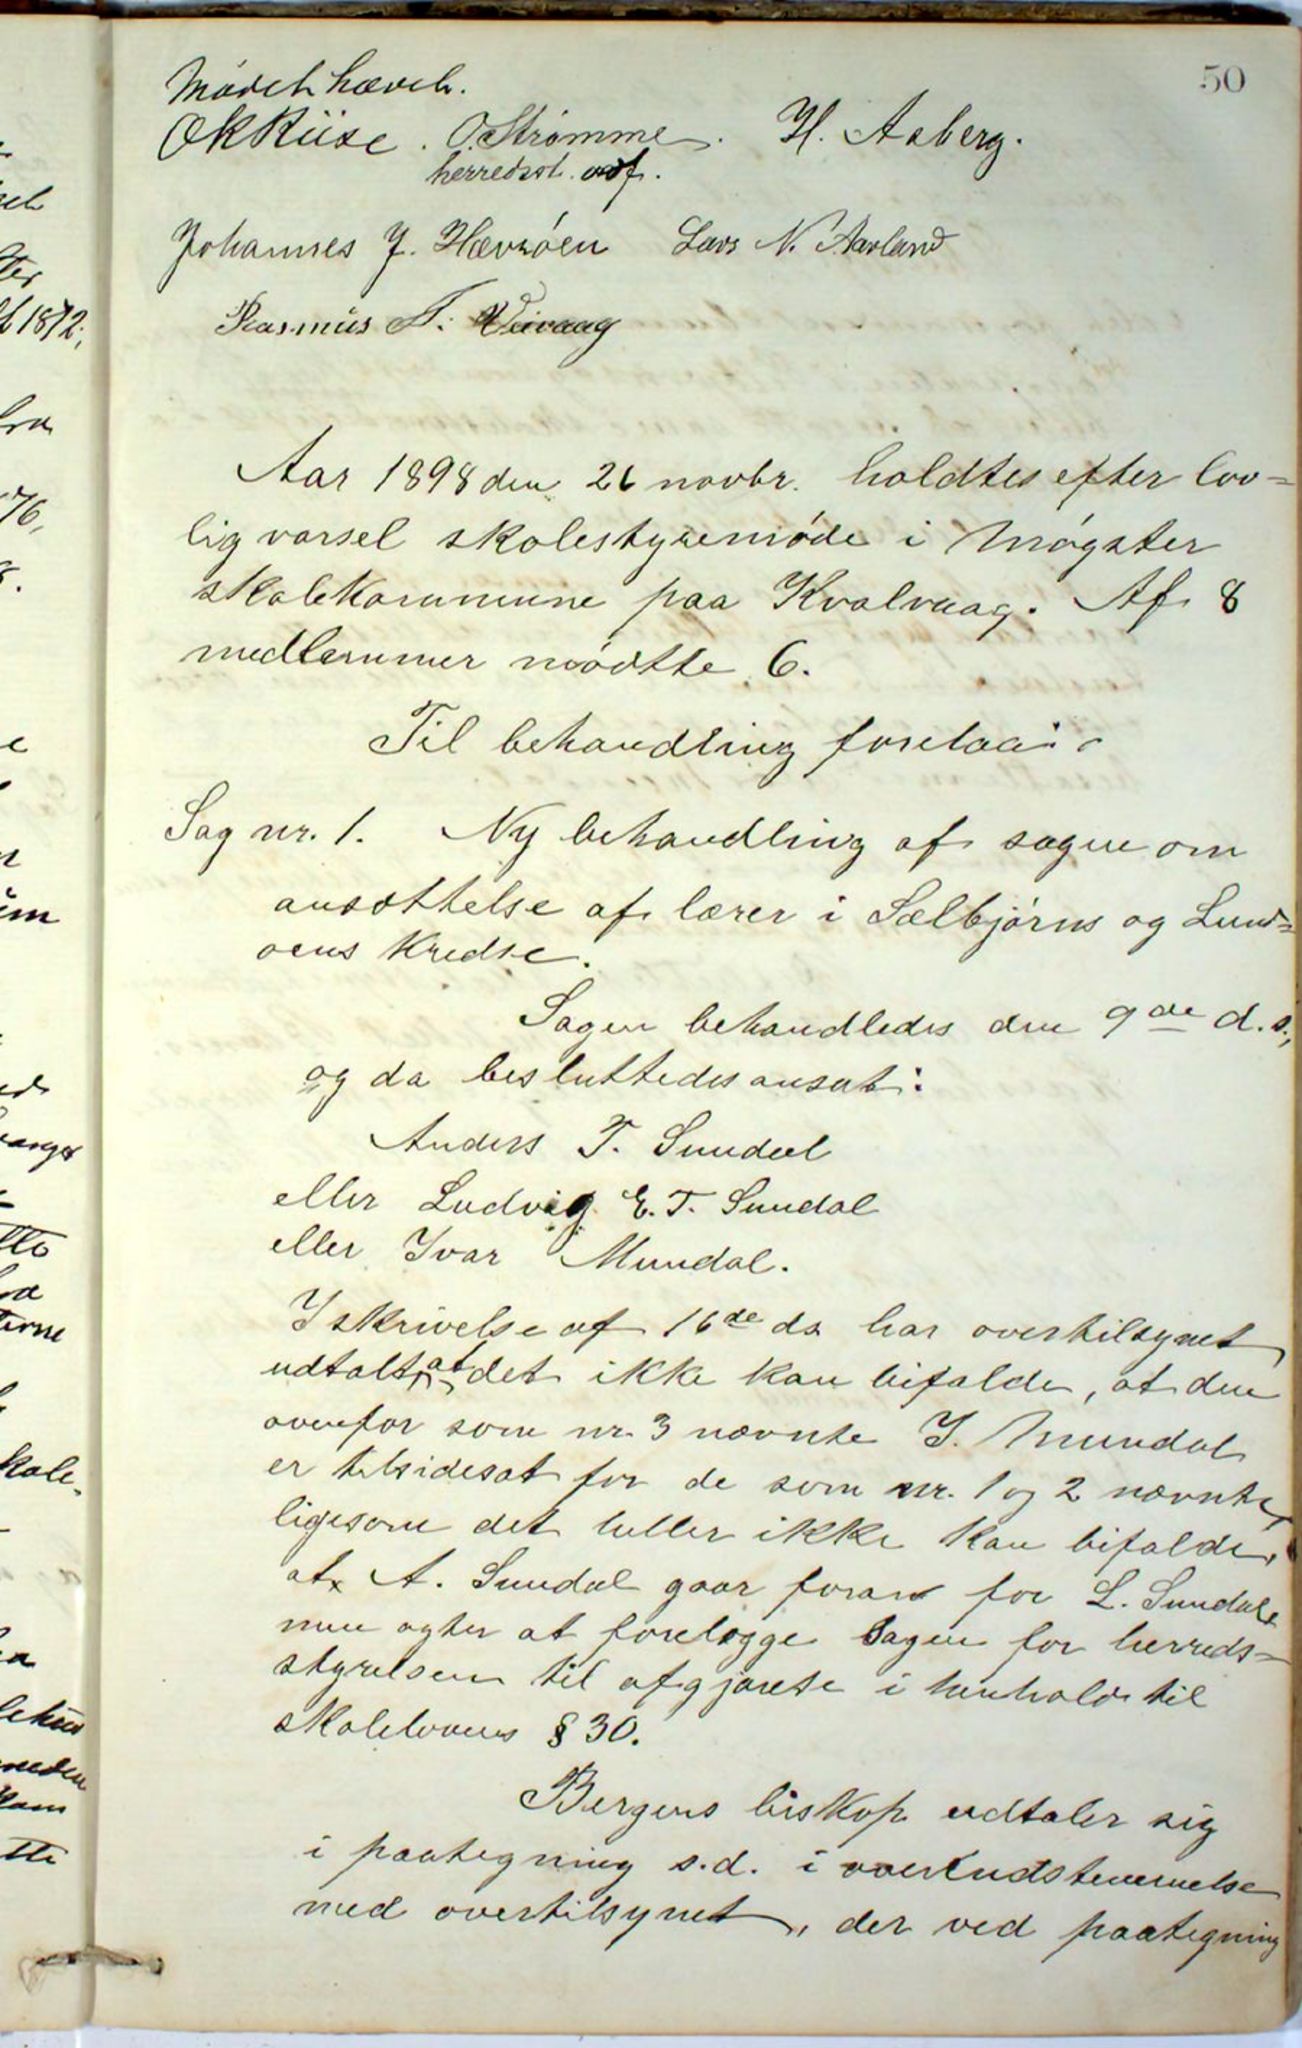 50
Mødet hævet.
OK Riise. O. Strømme. H. Aaberg.
herredsst. ordf.
Johannes J. Hevrøen Lars N. Aarland
Rasmus T. Vivaag
Aar 1898 den 26 novbr. holdtes efter lov=
lig varsel skolestyremøde i Møgster
skolekommune paa Kvalvaag. Af 8
medlemmer mødtte 6.
Til behandling forelaa:
Sag nr. 1. Ny behandling af sagen om
ansættelse af lærer i Sælbjørns og Lund=
øens Kredse.
Sagen behandledes den 9de d.s.,
og da besluttedes ansat:
Anders T. Sundal
eller Ludvig E. T. Sundal
eller Ivar Mundal.
I skrivelse af 16de ds har overtilsynet
udtalt, at det ikke kan bifalde, at den
ovenfor som nr. 3 nævnte I. Mundal
er tilsidesat for de som nr. 1 og 2 nævnte,
ligesom det heller ikke kan bifalde,
at A. Sundal gaar foran for L. Sundal,
men agter at forelægge sagen for herreds=
styrelsen til afgjørelse i henhold til
skolelovens § 30.
Bergens biskop udtaler sig
i paategning s.d. i overendstemmelse
med overtilsynet, der ved paategning